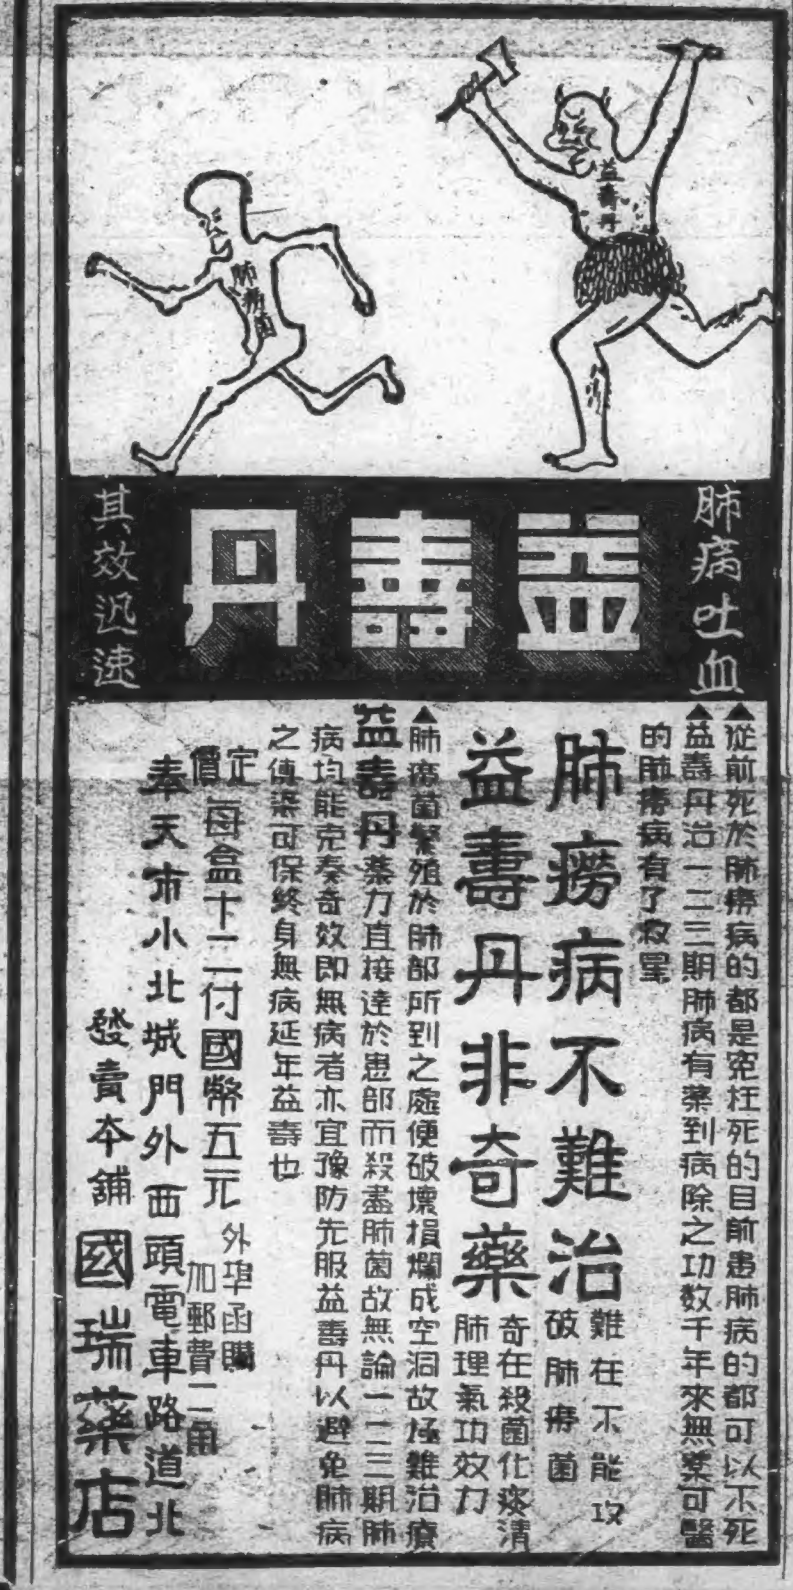 益壽丹
肺癆菌
肺病吐血
益壽丹
其效迅速
▲從前死於肺癆病的都是寃枉死的目前患肺病的都可以不死
▲益壽丹治一二三期肺病有藥到病除之功数千年來無藥可醫
的肺癆病有了救星
肺癆病不難治
難在不能攻
破肺癆菌
益壽丹非奇藥
奇在殺菌化痰清
肺理氣功效力
▲肺癆菌繁殖於肺部所到之處便破壞損爛成空洞故極難治療
益壽丹藥力直接達於患部而殺盡肺菌故無論一二三期肺
病均能克奏奇效即無病者亦宜豫防先服益壽丹以避免肺病
之傳染可保終身無病延年益壽也
定價
每盒十二付國幣五元
外埠函購
加郵費二角
奉天市小北城門外西頭電車路道北
發賣本舖
國瑞藥店